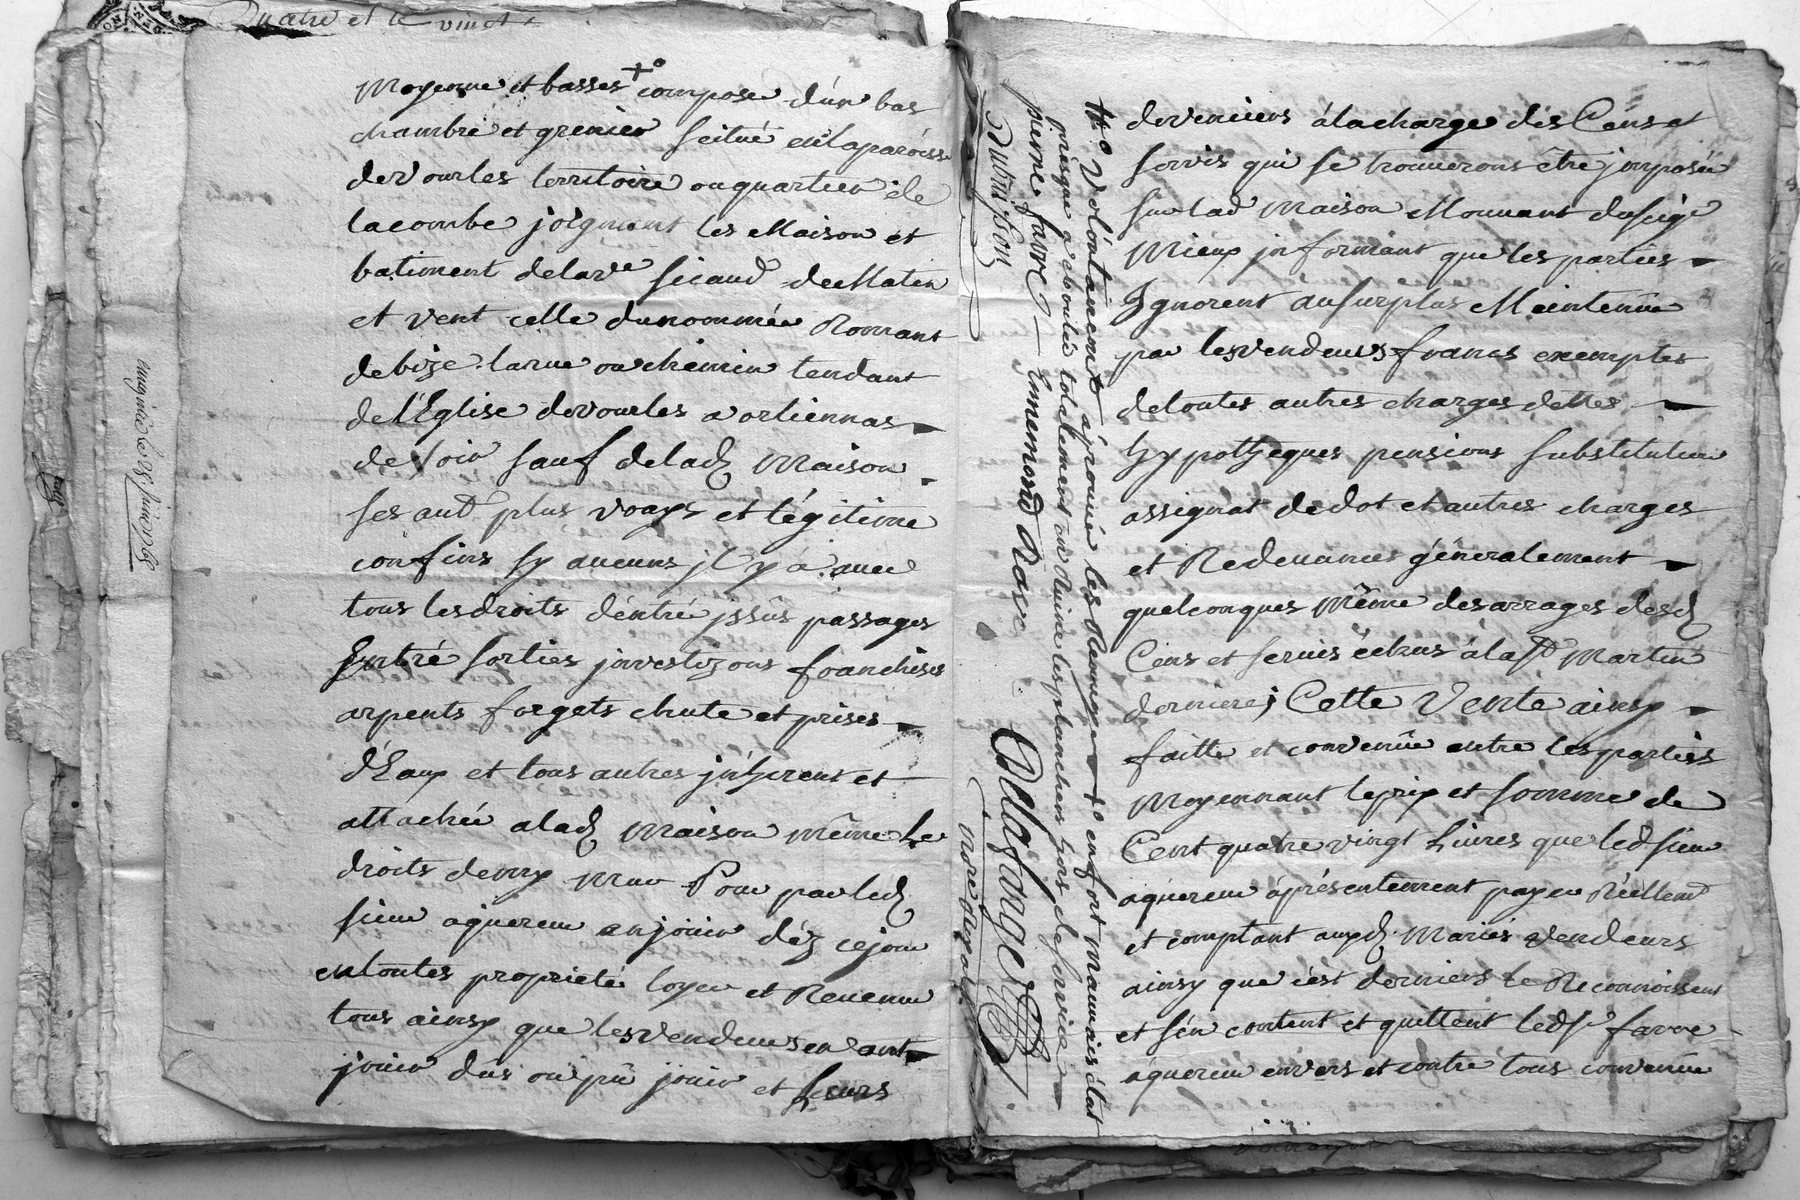 Quatre et le vingt
Moyenne et basses +° compose d'un bas
chambre et grenier scitué enlaparoisse
devourles territoire ouquartier de
lacombe joignant les Maison et
batiment delave sicaud deMatin
et vent celle dunommée Romant
debize larue ouchemin tendant
del'Eglise devourles avortiennas
desoir sauf delad Maison
ses autd plus vrays et légitime
confins sy aucuns jl y à avec
tous lesdroits déntré jssüs passages
Entré sorties jnvestizons franchises
arpents forgets chute et prises
d'Eaux et tous autres jnhérent et
attachée alad Maison même Le
droits demy mur Pour parled
sieur aquereur enjouir déz cejour
entoutes proprieté loyer et Revenue
tous ainsy que lesvendeurs en ont
jouir dus où pü jouir et Leurs
Dubuisson
pierre favre — Ennemond Rave
Delafarge
presque ecboulée totalement en Ruine lesplanchers hors deservice
#° Volontairement áprouvée les Renvoye +° enfort mauvais état
devenciers álacharge des Cens et
servis qui se trouverons être jmposée
surlad Maison Mouvant dusiége
Mieux jnformant queles parties
Ignorent ausurplus Maintenüe
par lesvendeurs francs exemptes
detoutes autres charges dettes
hypothéques pensions substitution
assignat dedot et autres charges
et Redevances généralement
quelconques Même desarrages desd
Cens et servis échus álast Martin
derniere; Cette Vente ainsy
faitte et convenüe entre lesparties
Moyennant leprix et somme de
Cent quatre vingt Livres que led sieur
aquereur áprésentement payer Réellemt
et comptant auxd. Mariés vendeurs
ainsy que cést derniers le Reconnoissent
et s'én content et quittent leds. favre
aquereur énvers et contre tous convenüe